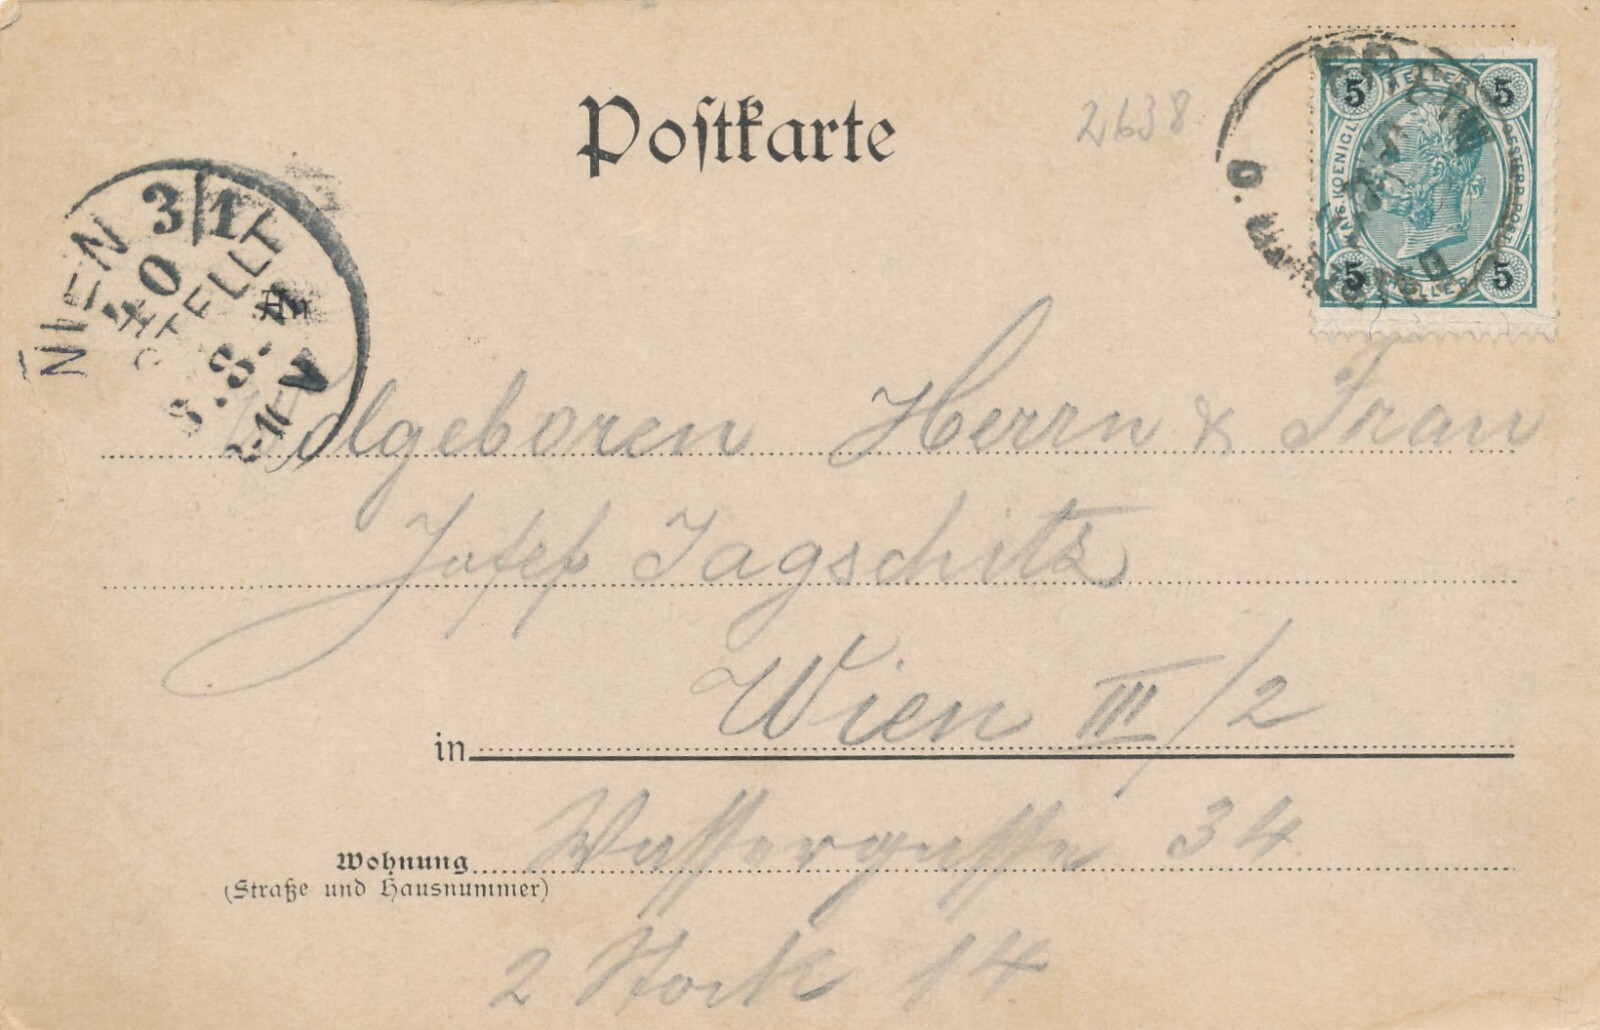 Postkarte
2638
5 HELLER 5
KAIS. KOENIGL.
OESTERR. POST
5 HELLER 5
WIEN 3/1
40
BESTELLT
Edlgeboren Herrn & Frau
Josef Jagschitz
in Wien III/2
Wohnung Wassergasse 34
(Straße und Hausnummer)
2 Stock 14